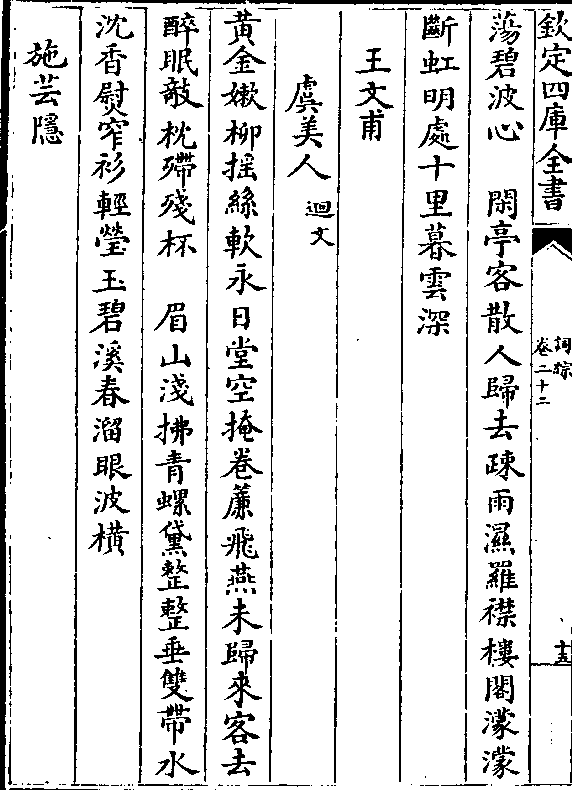 欽定四庫全書
詞綜
卷二十二
蕩碧波心　閑亭客散人歸去疎雨濕羅襟樓閣濛濛
斷虹明處十里暮雲深
王文甫
虞美人 迴文
黃金嫩柳揺絲軟永日堂空掩卷簾飛燕未歸來客去
醉眠敧枕殢殘杯　眉山淺拂青螺黛整整垂雙帶水
沈香熨窄衫輕瑩玉碧溪春溜眼波横
施芸隱